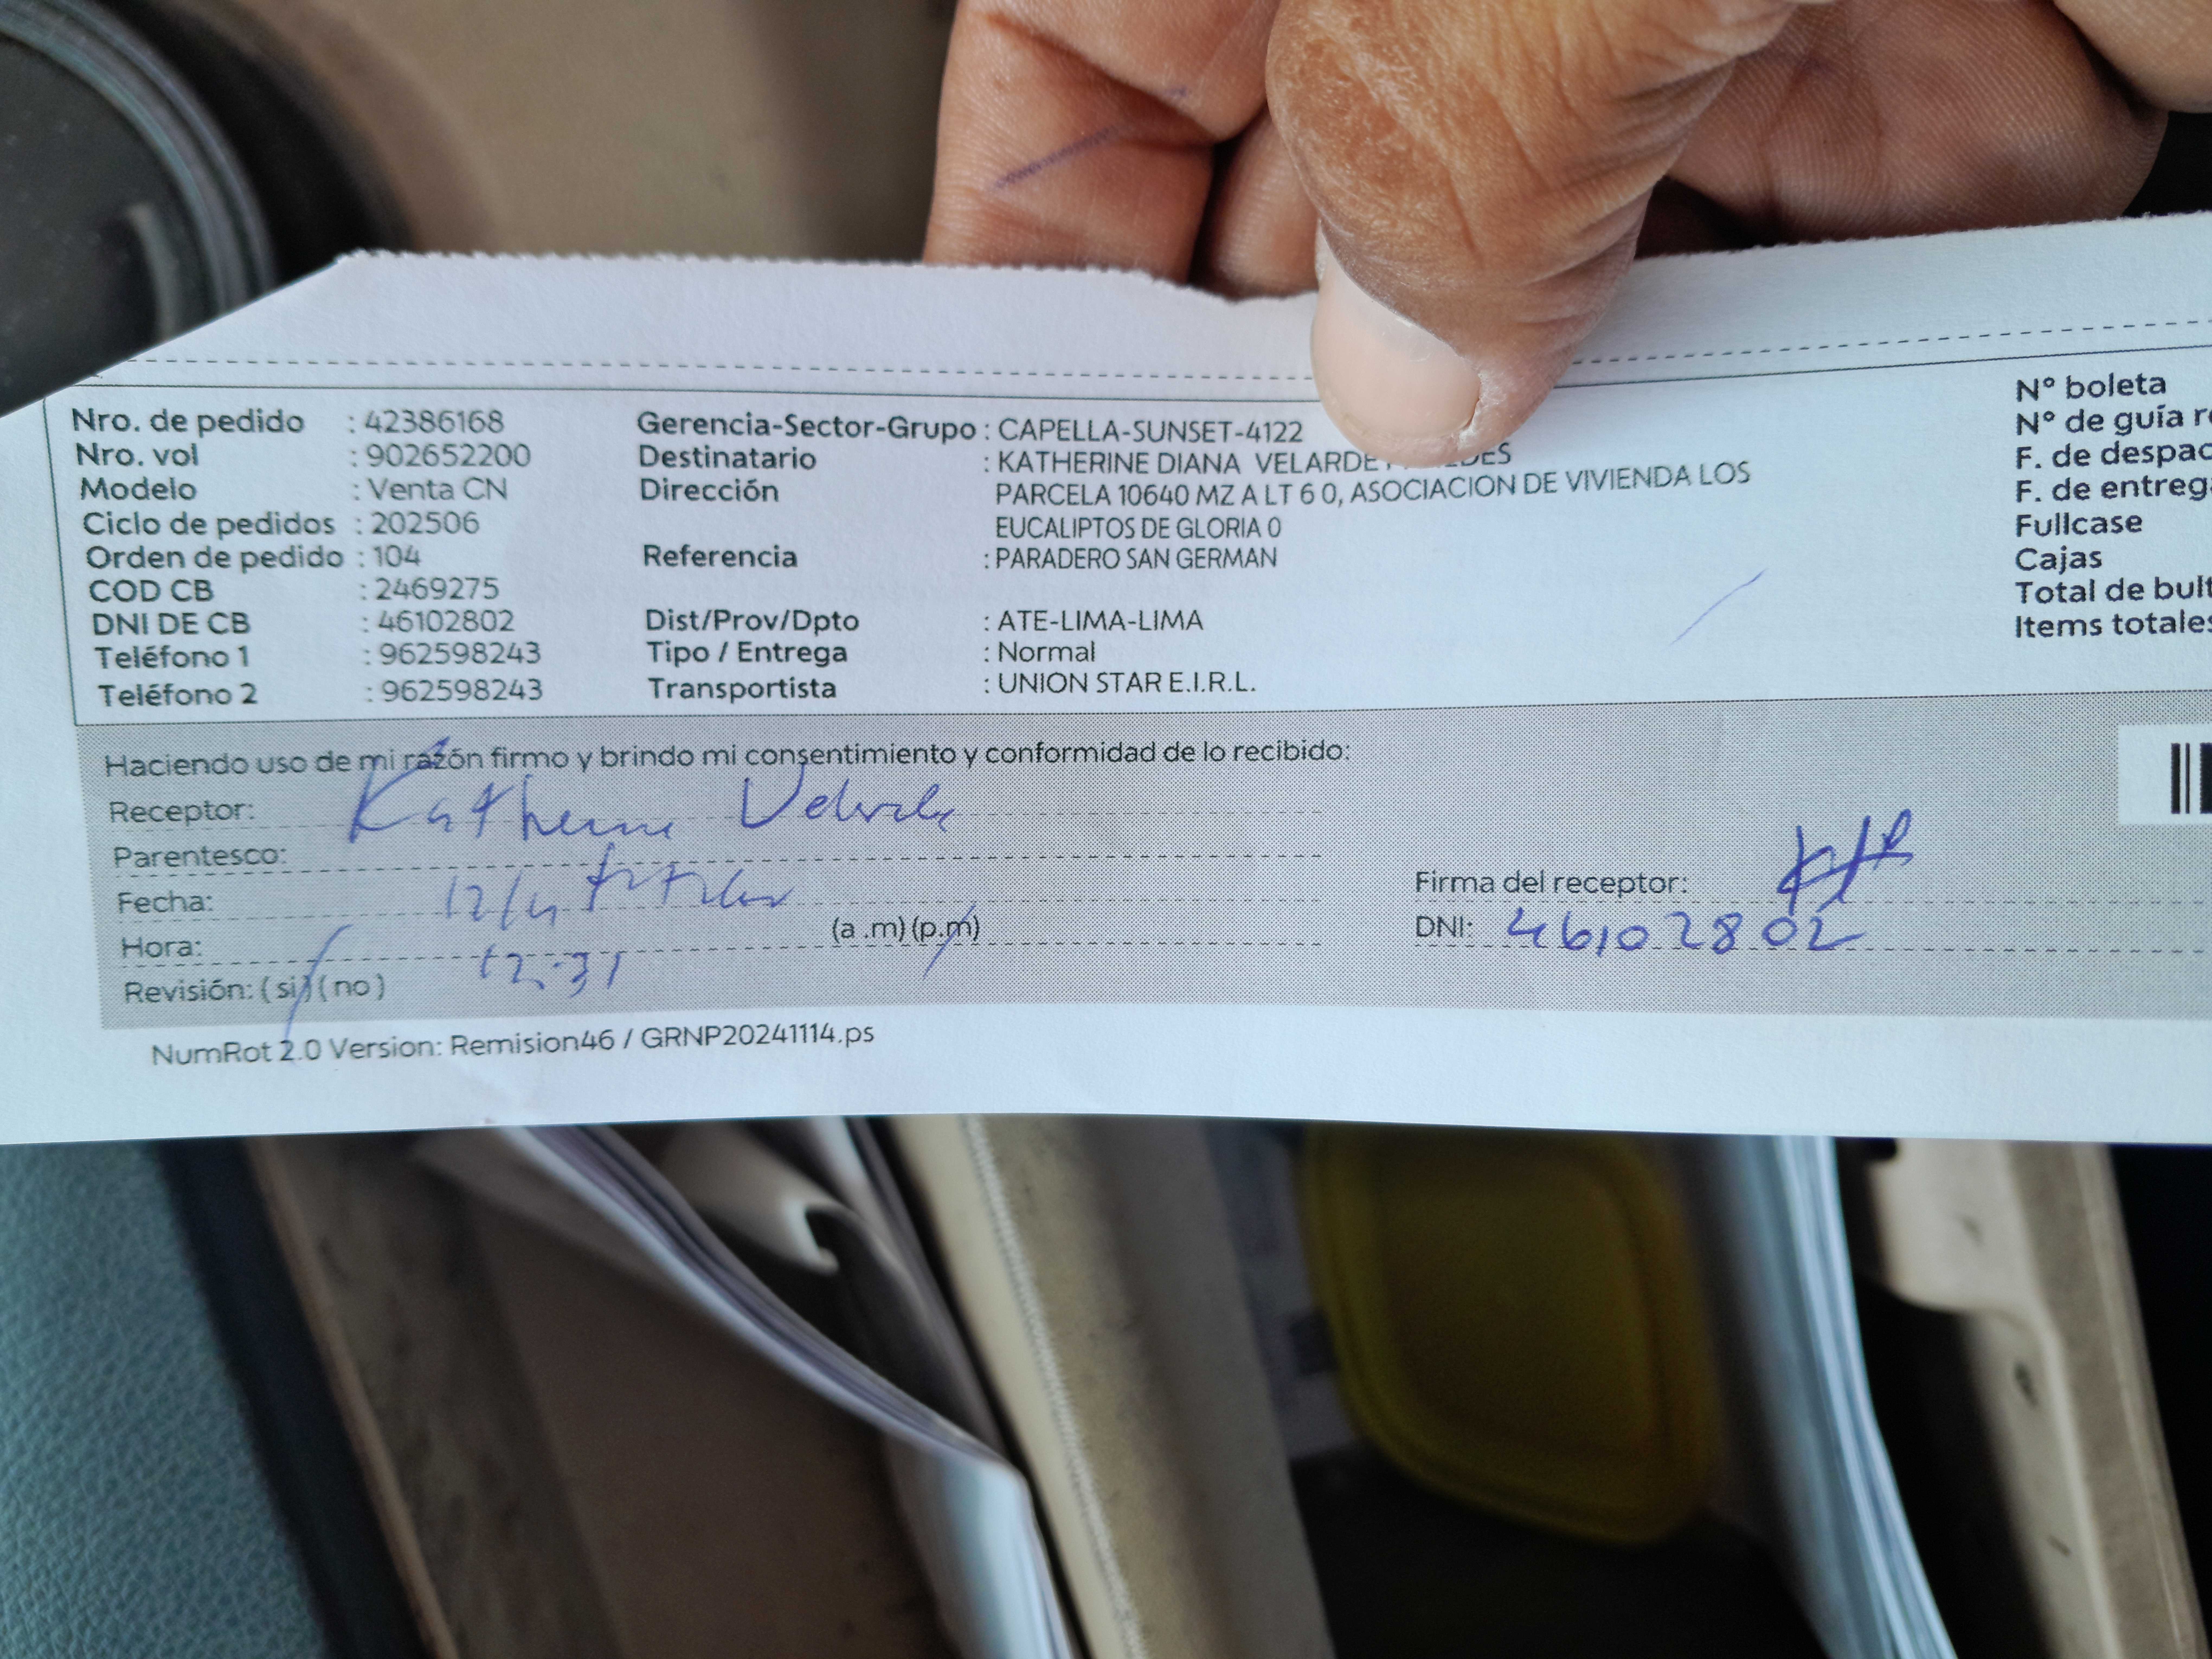 Nro. de pedido : 42386168
Nro. vol : 902652200
Modelo : Venta CN
Ciclo de pedidos : 202506
Orden de pedido : 104
COD CB : 2469275
DNI DE CB : 46102802
Teléfono 1 : 962598243
Teléfono 2 : 962598243
Gerencia-Sector-Grupo : CAPELLA-SUNSET-4122
Destinatario : KATHERINE DIANA VELARDE
Dirección PARCELA 10640 MZ A LT 6 0, ASOCIACION DE VIVIENDA LOS
EUCALIPTOS DE GLORIA 0
Referencia : PARADERO SAN GERMAN
Dist/Prov/Dpto : ATE-LIMA-LIMA
Tipo / Entrega : Normal
Transportista : UNION STAR E.I.R.L.
N° boleta
N° de guía
F. de
F. de
Fullcase
Cajas
Total de
Items
Haciendo uso de mi razón firmo y brindo mi consentimiento y conformidad de lo recibido:
Receptor: Katherine Velarde
Parentesco: titular
Fecha: 12/4
Hora: 12:31 (a .m) (p.m)
Revisión: ( si ) ( no )
Firma del receptor:
DNI: 46102802
NumRot 2.0 Version: Remision46 / GRNP20241114.ps